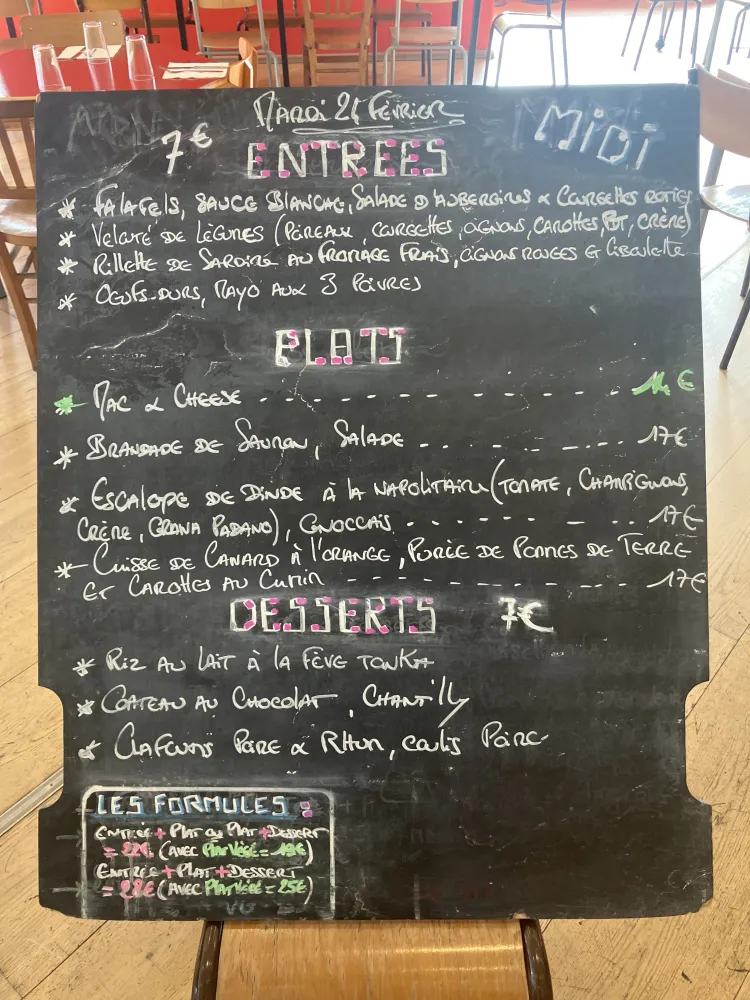 MARDI 24 FÉVRIER
MIDI
7€
ENTREES
* FALAFELS, SAUCE BLANCHE, SALADE D'AUBERGINES & COURGETTES ROTIES
* VELOUTÉ DE LÉGUMES (POIREAUX, COURGETTES, OIGNONS, CAROTTES, PDT, CRÈME)
* RILLETTE DE SARDINE AU FROMAGE FRAIS, OIGNONS ROUGES ET CIBOULETTE
* OEUFS DURS, MAYO AUX 3 POIVRES
PLATS
* MAC & CHEESE - - - - - - - - - - 14€
* BRANDADE DE SAUMON, SALADE - - - - - - - - 17€
* ESCALOPE DE DINDE À LA NAPOLITAINE (TOMATE, CHAMPIGNONS,
CRÈME, GRANA PADANO), GNOCCHIS - - - - - - - - 17€
* CUISSE DE CANARD À L'ORANGE, PURÉE DE POMMES DE TERRE
ET CAROTTES AU CUMIN - - - - - - - - - - 17€
DESSERTS 7€
* RIZ AU LAIT À LA FÈVE TONKA
* GATEAU AU CHOCOLAT, CHANTILLY
* CLAFOUTIS POIRE & RHUM, COULIS POIRE
LES FORMULES :
ENTRÉE + PLAT OU PLAT + DESSERT
= 22€ (AVEC PLAT VÉGÉ = 19€)
ENTRÉE + PLAT + DESSERT
= 28€ (AVEC PLAT VÉGÉ = 25€)